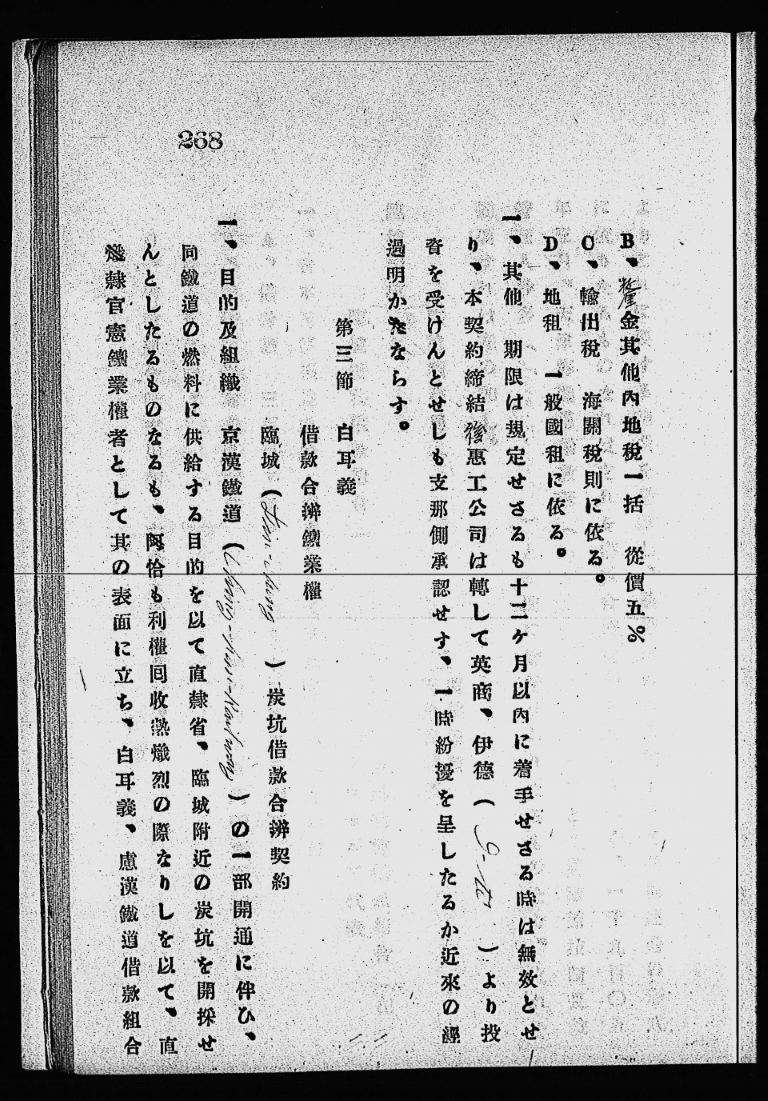 268
B、釐金其他內地稅一括 從價五%
C、輸出稅 海關稅則に依る。
D、地租 一般國租に依る。
一、其他 期限は規定せさるも十二ケ月以內に着手せさる時は無效とせ
り、本契約締結後惠工公司は轉して英商、伊德（ ）より投
資を受けんとせしも支那側承認せす、一時紛擾を呈したるか近來の經
過明かたならす。
第三節 白耳義
借款合辨鑛業權
臨城（Lin-chung）炭坑借款合辨契約
一、目的及組織 京漢鐵道（ -Han-Railway）の一部開通に伴ひ、
同鐵道の燃料に供給する目的を以て直隸省、臨城附近の炭坑を開採せ
んとしたるものなるも、阿恰も利權回收熱熾烈の際なりしを以て、直
隸官憲鑛業權者として其の表面に立ち、白耳義、盧漢鐵道借款組合